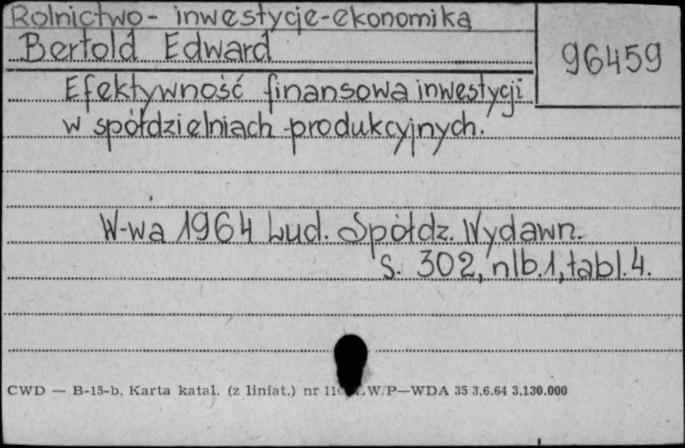 Rolnictwo - inwestycje - ekonomika
Bertold Edward
96459
Efektywność finansowa inwestycji
w spółdzielniach produkcyjnych.
W-wa 1964 Lud. Spółdz. Wydawn.
s. 302, nlb. 1, tabl. 4.
CWD — B-15-b, Karta katal. (z liniat.) nr W/P—WDA 35 3.6.64 3.130.000